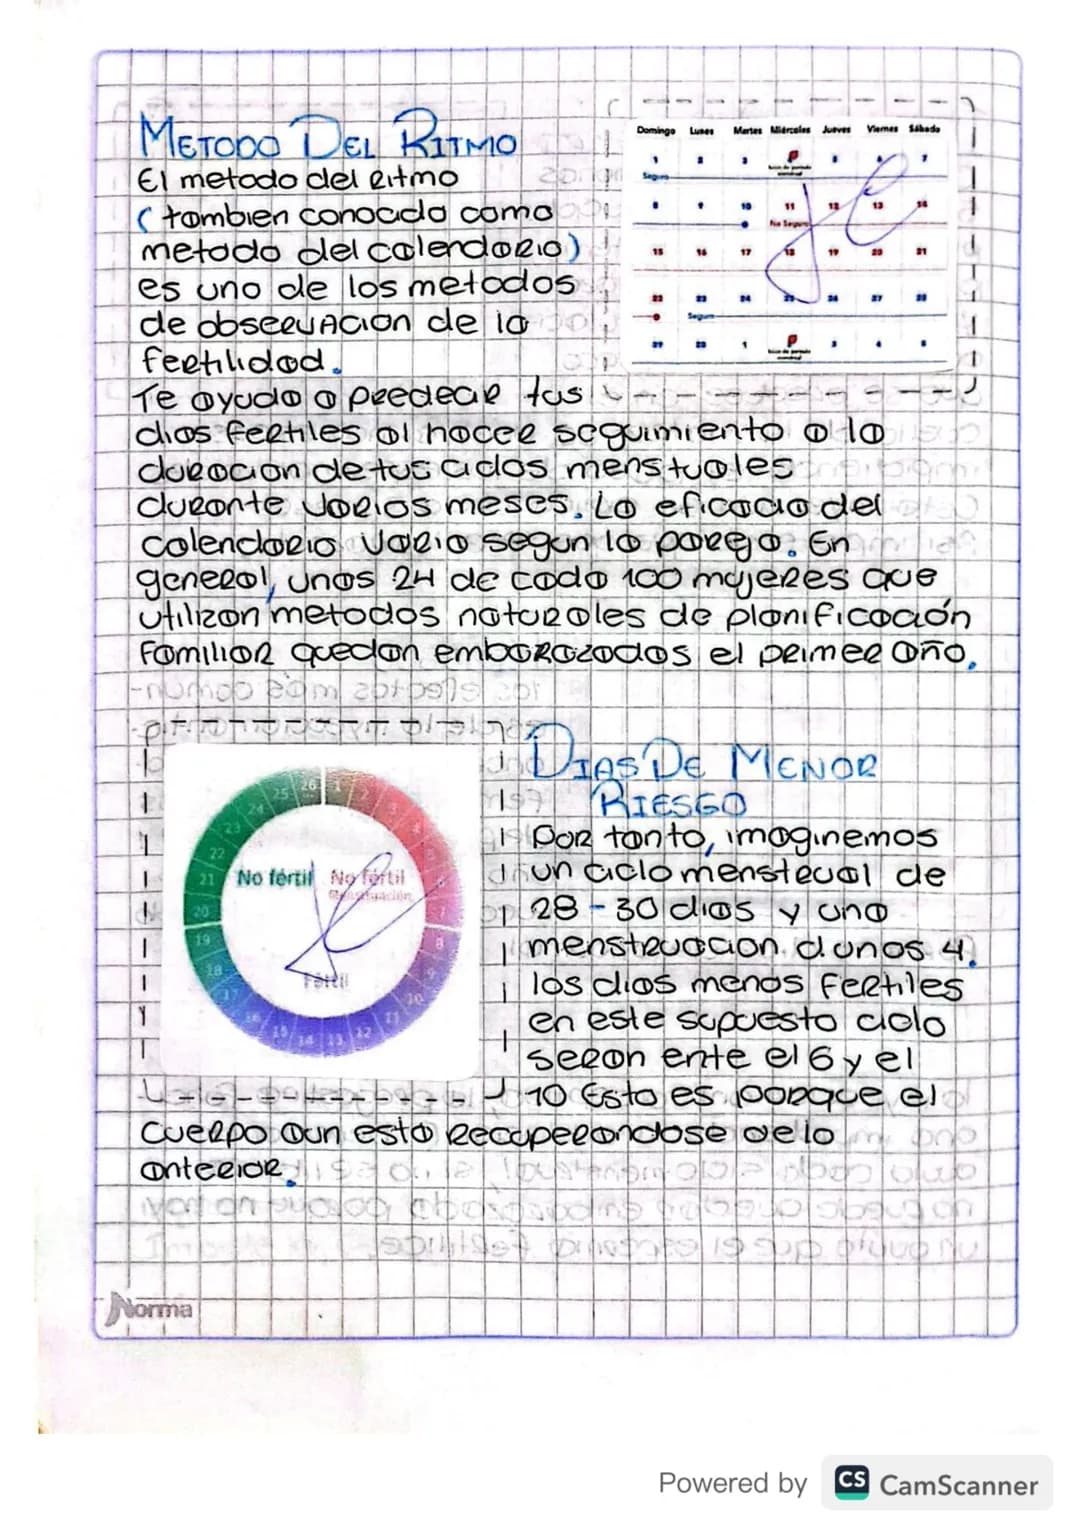 METODO DEL RITMO
El metodo del ritmo
(tambien conocido como
metodo del calendario)
es uno de los metodos
de observacion de la
fertilidad.
Te ayuda a predecir tus
dias fertiles al hacer seguimiento a la
duracion de tus ciclos menstuales
durante varios meses. La eficacia del
calendario varia segun la pareja. En
general, unas 24 de cada 100 mujeres que
utilizan metodos naturales de planificación
familiar quedan embarazadas el primer año.
Domingo Lunes Martes Miércoles Jueves Viernes Sábado
1 2 3 5 6 7
Seguro
8 9 10 11 12 13 14
No Seguro
15 16 17 18 19 20 21
22 23 24 25 26 27 28
Seguro
1 3 4 5
DIAS DE MENOR
RIESGO
Por tanto, imaginemos
un ciclo menstrual de
28-30 dias y una
menstruacion d unos 4.
los dias menos fertiles
en este supuesto ciclo
seran ente el 6 y el
10 Esto es porque el
cuerpo aun esta recuperandose de lo
anterior.
26 1 2 3 4 5 6 7 8 9 10 11 12 13 14 15 16 17 18 19 20 21 22 23 24 25
No fértil No fértil
Menstruación
Fértil
Norma
Powered by CS CamScanner